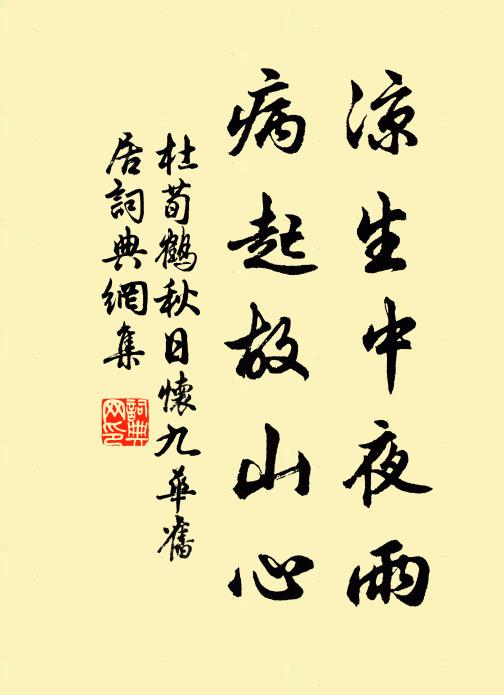 凉生中夜雨
病起故山心
杜荀鶴秋日懷九華舊
居詞典網集
詞典
网印